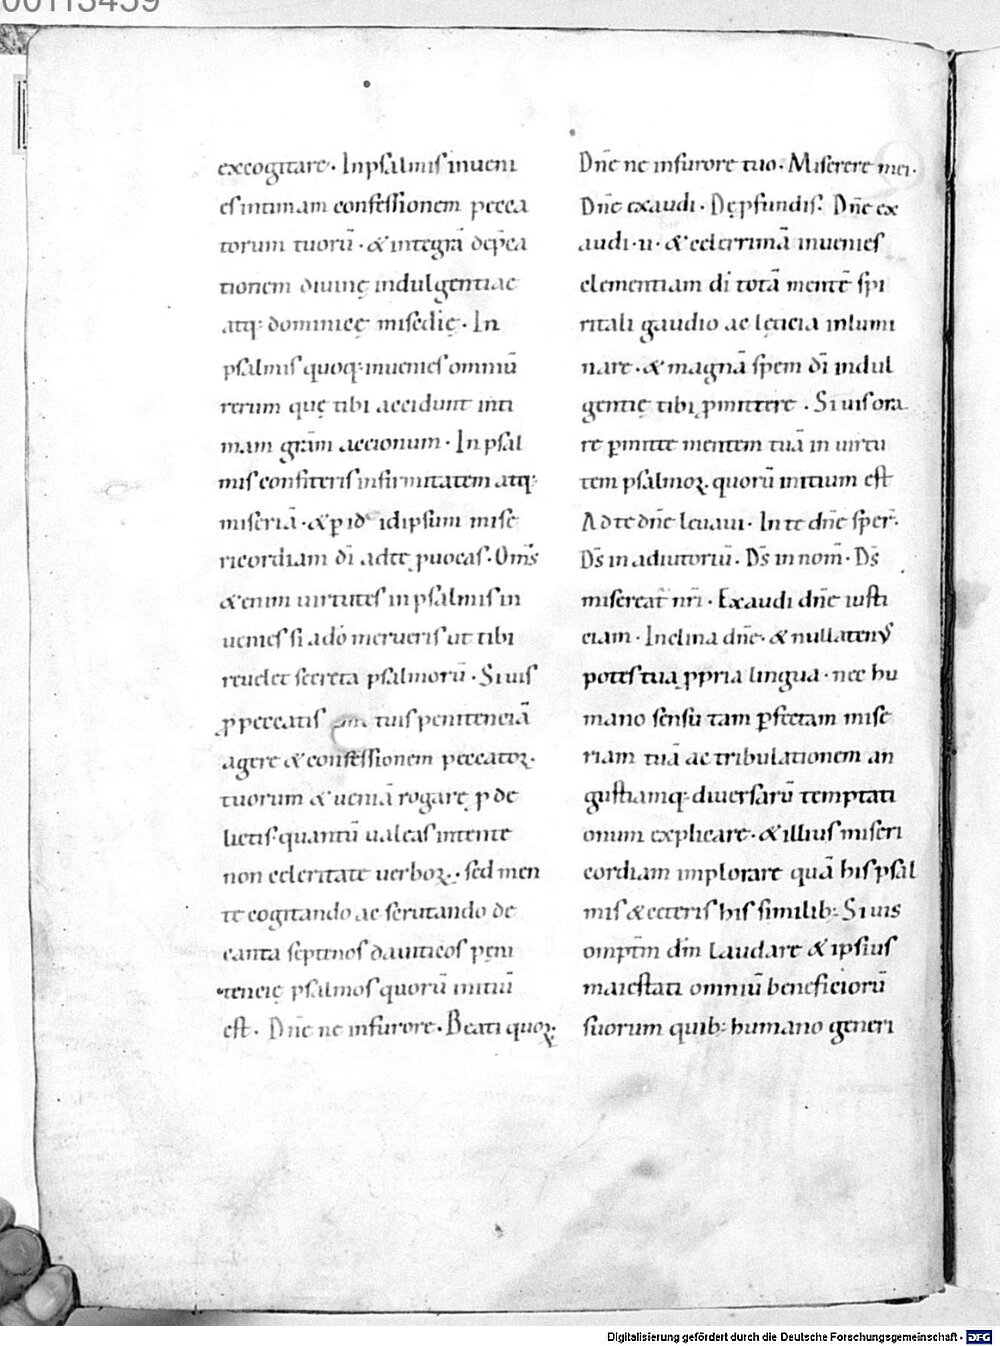 00113459
excogitare · In psalmis inueni
es intimam confessionem pecca
torum tuorū · & integrā dep̄ca
tionem diuinę indulgentiae
atq; dominicę mis̄edię · In
psalmis quoq; inuenies omniū
rerum quę tibi accidunt inti
mam grām accionum · In psal
mis confiteris infirmitatem atq;
miseriā · & ꝑ id idipsum mise
ricordiam dī ad te ꝓuocas · Om̄s
& enim uirtutes in psalmis in
uenies si a dō merueris ut tibi
reuelet secreta psalmorū · Si uis
ꝓ peccatis tuis penitenciā
agere & confessionem peccatoꝝ ·
tuorum & ueniā rogare ꝓ de
lictis · quantū ualeas intente
non celeritate uerboꝝ · sed men
te cogitando ac scrutando de
canta septenos dauiticos pęni
tencię psalmos quorū initiū
est · Dn̄e ne in furore · Beati quoꝝ ·
Dn̄e ne in furore tuo · Miserere mei ·
Dn̄e exaudi · De ꝓfundis · Dn̄e ex
audi · ii · & celerrimā inuenies
clementiam dī totā mentē spi
ritali gaudio ac lęticia inlumi
nare · & magnā spem dī indul
gentię tibi ꝓmittere · Si uis ora
re ꝑmitte mentem tuā in uirtu
tem psalmoꝝ quorū initium est
Ad te dn̄e leuaui · In te dn̄e sper ·
Ds̄ in adiutoriū · Ds̄ in nom̄ · Ds̄
misereat̄ nr̄i · Exaudi dn̄e iusti
ciam · Inclina dn̄e · & nullatenus
potes tua ꝓpria lingua · nec hu
mano sensu tam ꝑfectam mise
riam tuā ac tribulationem an
gustiamq; diuersarū temptati
onum explicare · & illius miseri
cordiam implorare quā his psal
mis & ceteris his similib; Si uis
omptm̄ dm̄ laudare & ipsius
maiestati omniū beneficiorū
suorum quib; humano generi
Digitalisierung gefördert durch die Deutsche Forschungsgemeinschaft · DFG